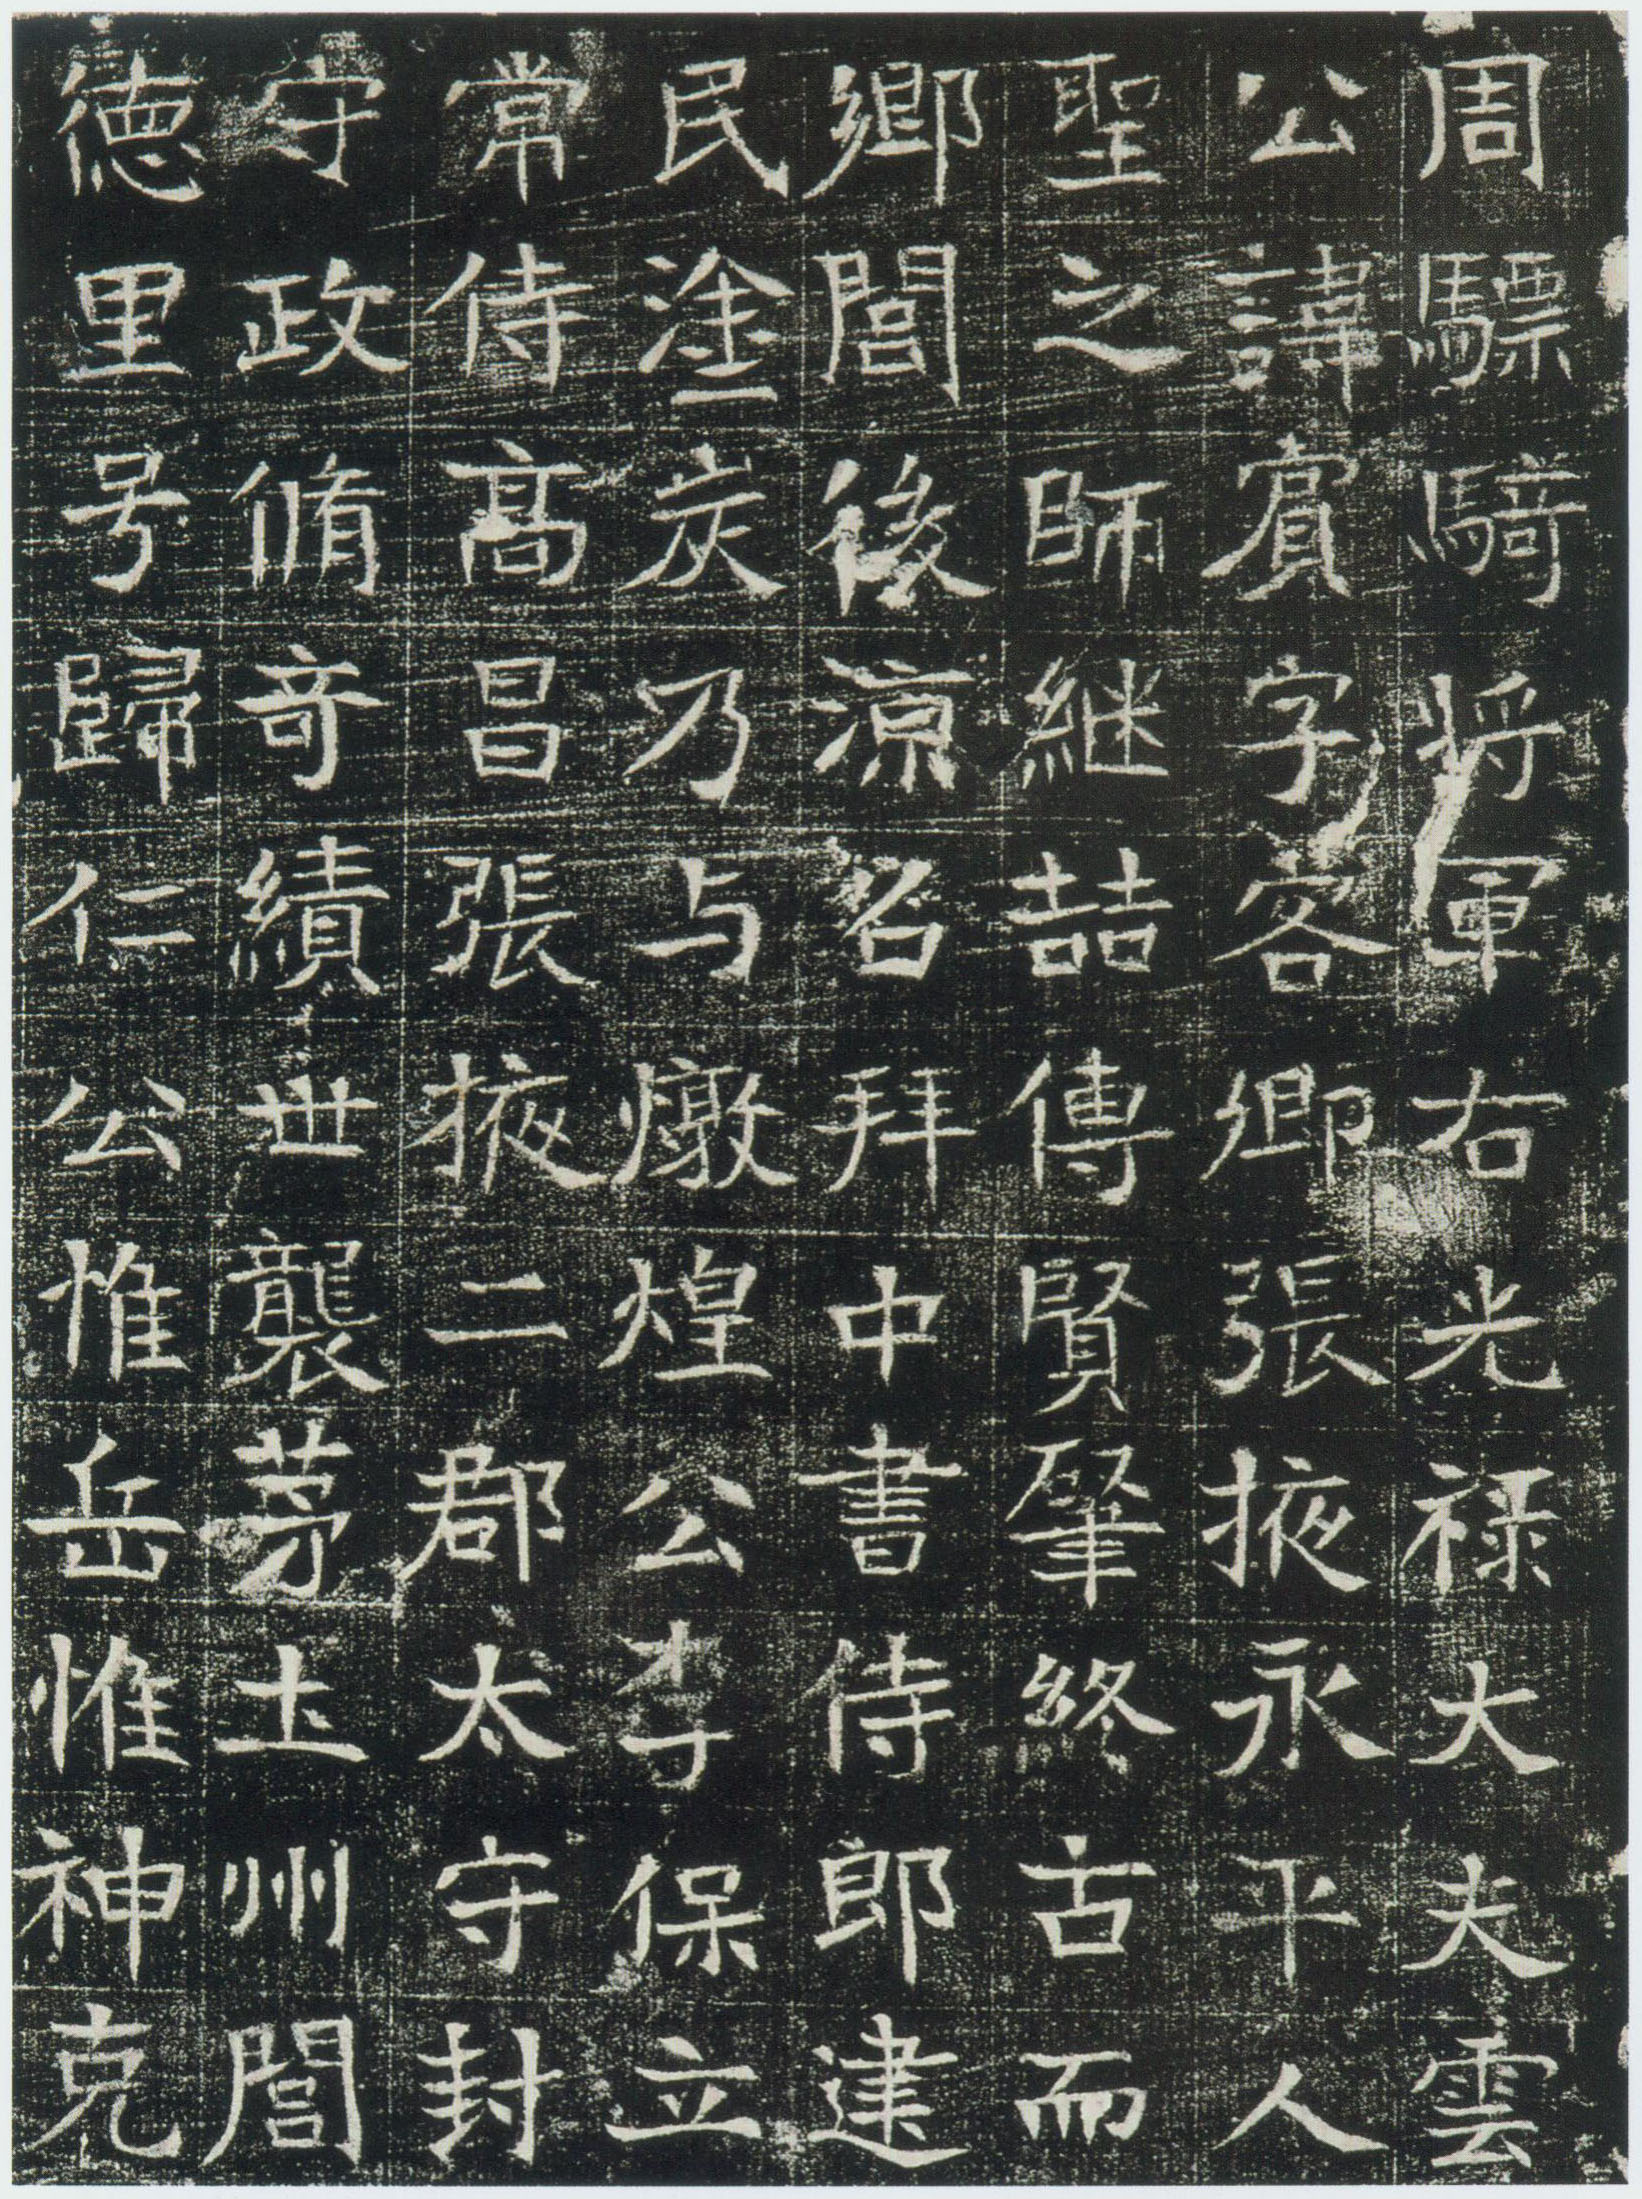 周驃騎將軍右光祿大夫雲
公諱賓字客卿張掖永平人
聖之師継喆傳賢肇終古而
鄉閭後涼吕拜中書侍郎建
民塗炭乃与燉煌公李保立
常侍高昌張掖二郡太守封
守政脩竒績世襲茅土州閭
德里号歸仁公惟岳惟神克